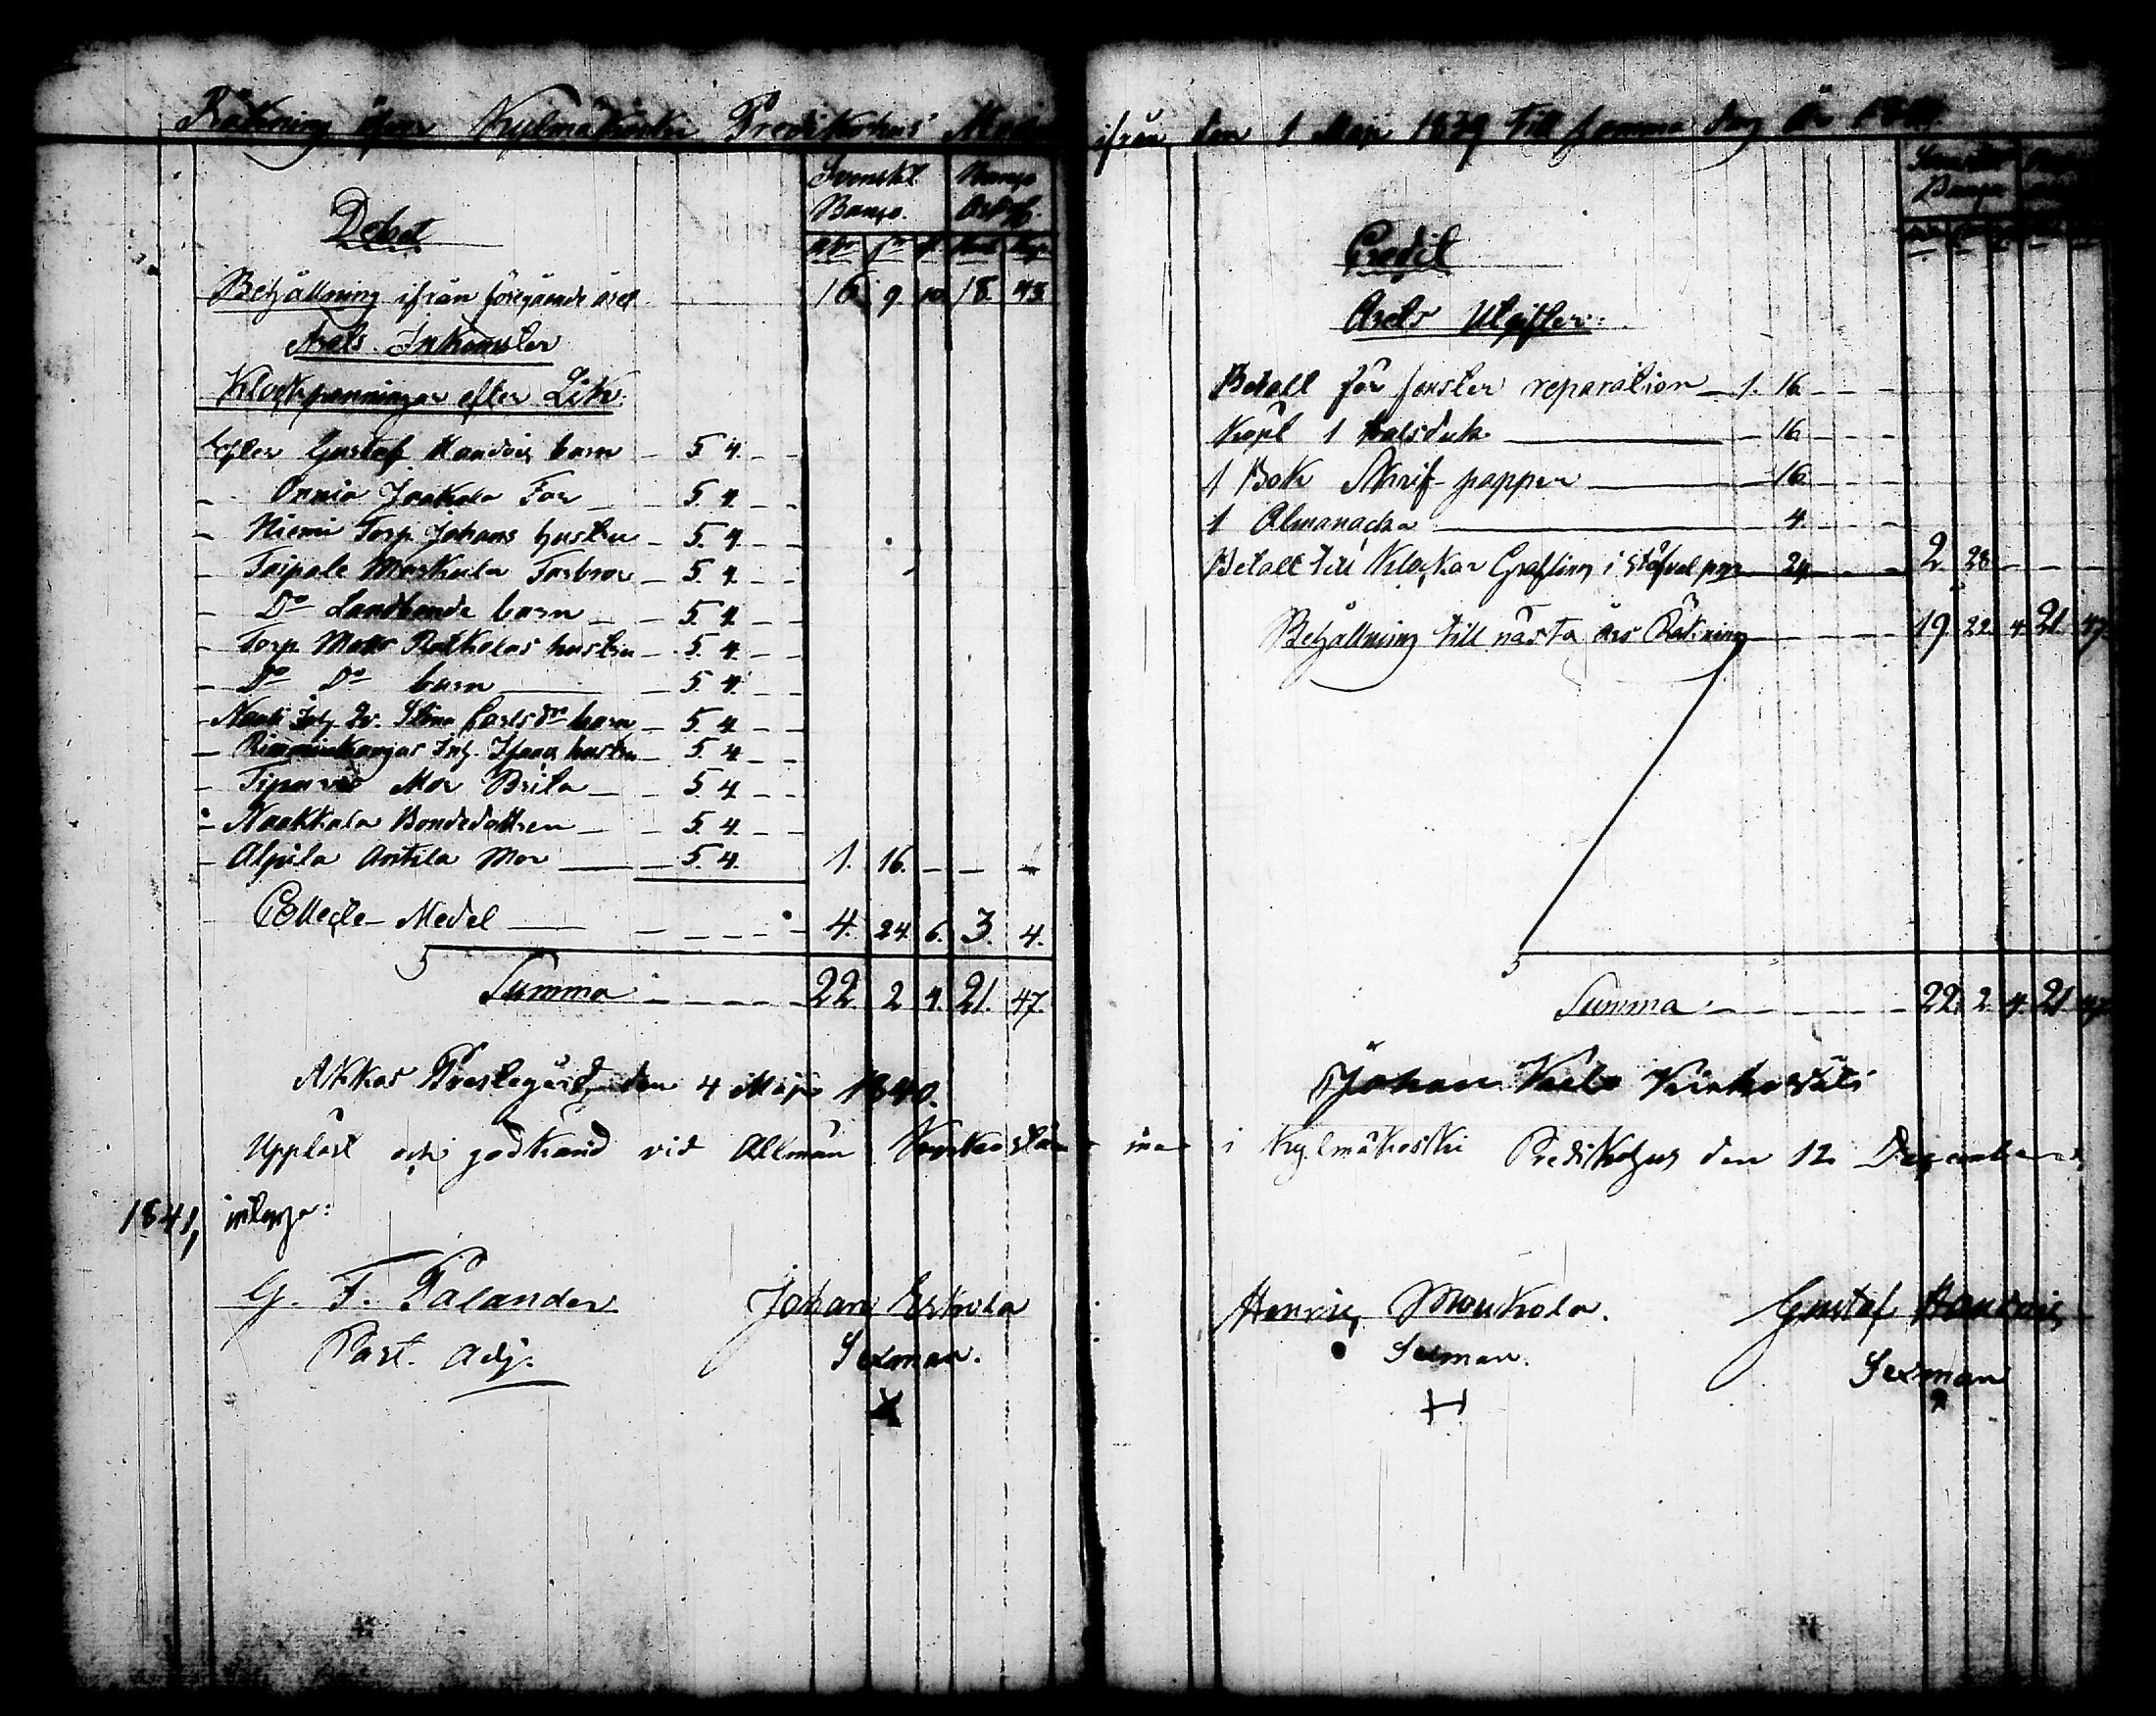 Räkning öfver Kylmäkoski Predikohus Medel ifrån den 1 Maji 1839 till samma dag År 1840
Debet
Svenskt Banco. Banco
RDr
Behållning ifrånföregående året 16. 9. 10. 18. 43
Årets Inkomster
Klockpenningar efter Lik:
Efter Gustaf Handois barn 5. 4.
Onnia Jaakola Far 5. 4.
Niemi Torp. Johans hustru 5. 4.
Taipale Maskula Farbror 5. 4.
Do Landbonde barn 5. 4.
Torp. Matts hustru 5. 4.
Do Do barn 5. 4.
Inh. Stina Carlsdr barn 5. 4.
Inh. hustru 5. 4.
Mor Brita 5. 4.
Naakkala Bondedottren 5. 4.
Alpila Antila Mor 5. 4. 1. 16. - - -
Collecte Medel 4. 24. 6. 3. 4.
Summa 22. 2. 4. 21. 47.
Akkas Prestegård, den 4 Maji 1840.
Upplöst och godkänd vid Allmän Sockenstämma i Kylmäkoski Predikohus den 12 December
1841, intyga:
G. F. Palander
Past. Adj.
Johan Eskola
Sexman.
Credit
Svenskt Banco
Årets Utgifter:
Betalt för fenster reparation 1. 16.
Köpt 1 halsduk 16
1 Bok Skrif papper 16
1 Almanacka 4.
Betalt till Klockar Grafling i 24 2. 28
Behållning till nästa års Räkning 19. 22. 4. 21. 47.
Summa 22. 2. 4. 21. 47
Johan
Henric Moukola.
Sexman.
Gustaf Handois
Sexman